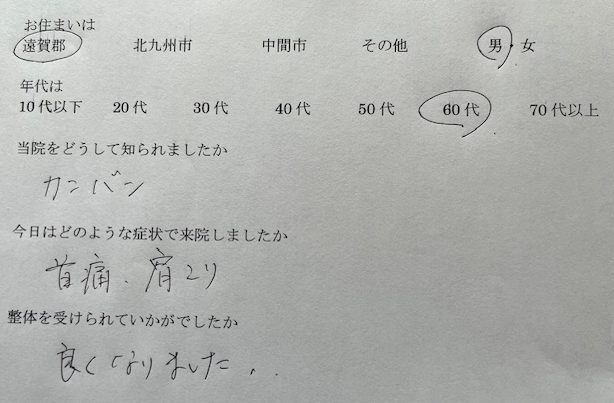 お住まいは
遠賀郡 北九州市 中間市 その他 男・女
年代は
10代以下 20代 30代 40代 50代 60代 70代以上
当院をどうして知られましたか
カンバン
今日はどのような症状で来院しましたか
首痛、肩こり
整体を受けられていかがでしたか
良くなりました..